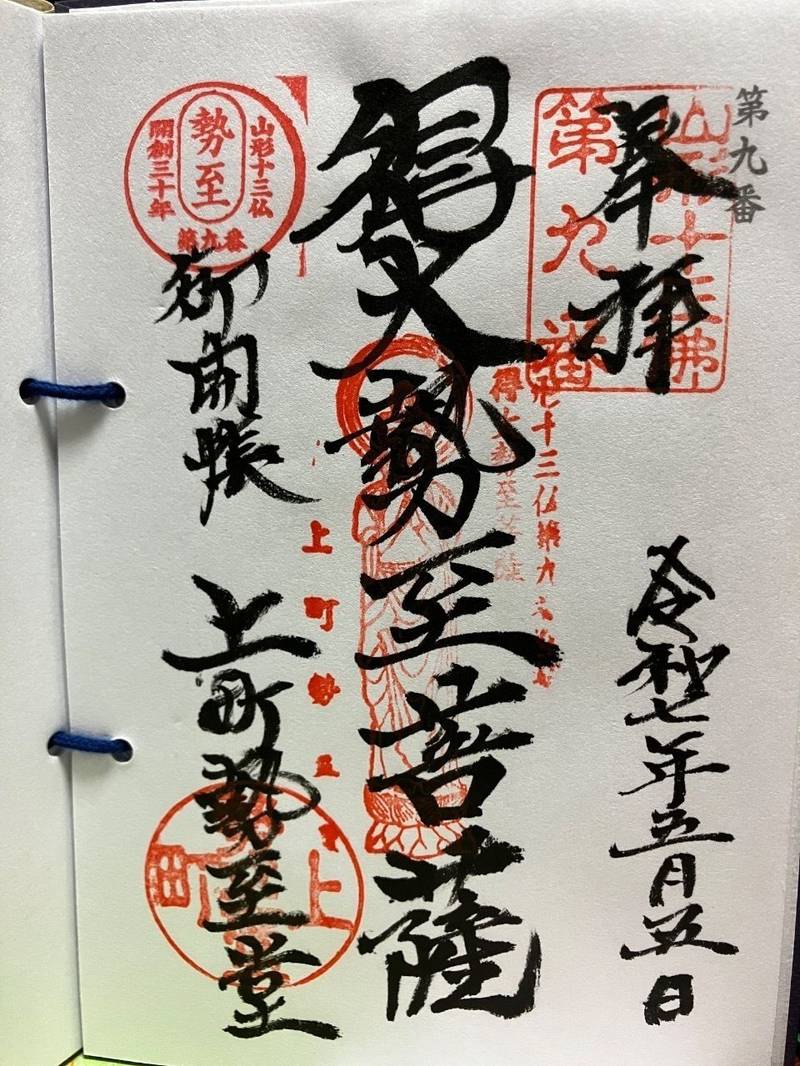 第九番
奉拝
山形十三佛
第九番
令和七年五月五日
得大勢至菩薩
得大勢至菩薩
山形十三仏
勢至
開創三十年
第九番
御開帳
上町勢至堂
上町勢至堂